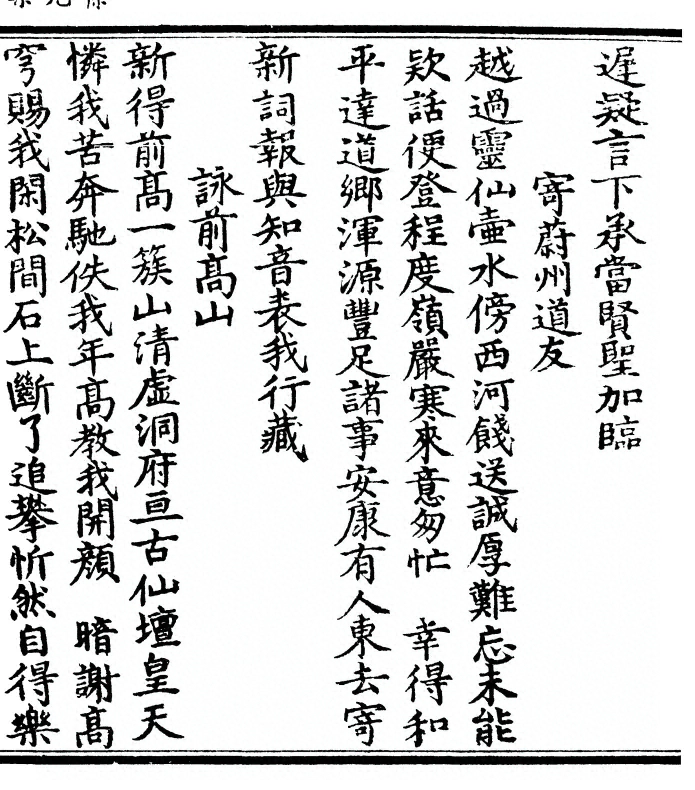 遲疑言下承當賢聖加臨
寄蔚州道友
越過靈仙壺水傍西河餞送誠厚難忘未能
欵話便登程度嶺嚴寒來意匆忙　幸得和
平達道鄉渾源豐足諸事安康有人東去寄
新詞報與知音表我行藏
詠前高山
新得前高一簇山清虛洞府亘古仙壇皇天
憐我苦奔馳佚我年高教我開顏　暗謝高
穹賜我閑松間石上斷了追攀忻然自得樂